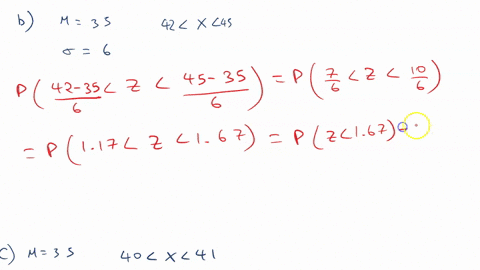 b) M = 35 42 < X < 45
σ = 6
P( (42-35)/6 < Z < (45-35)/6 ) = P( 7/6 < Z < 10/6 )
= P( 1.17 < Z < 1.67 ) = P( Z < 1.67 )
C) M = 35 40 < X < 41